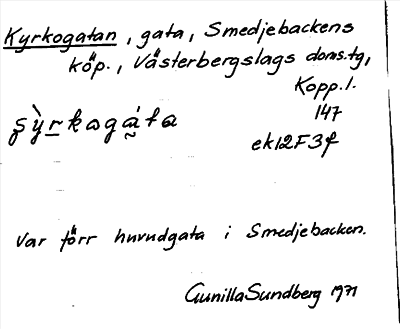 Kyrkogatan, gata, Smedjebackens
köp., Västerbergslags doms.tg,
Kopp.l.
147
ek12F3f
Var förr huvudgata i Smedjebacken.
Gunilla Sundberg 1971